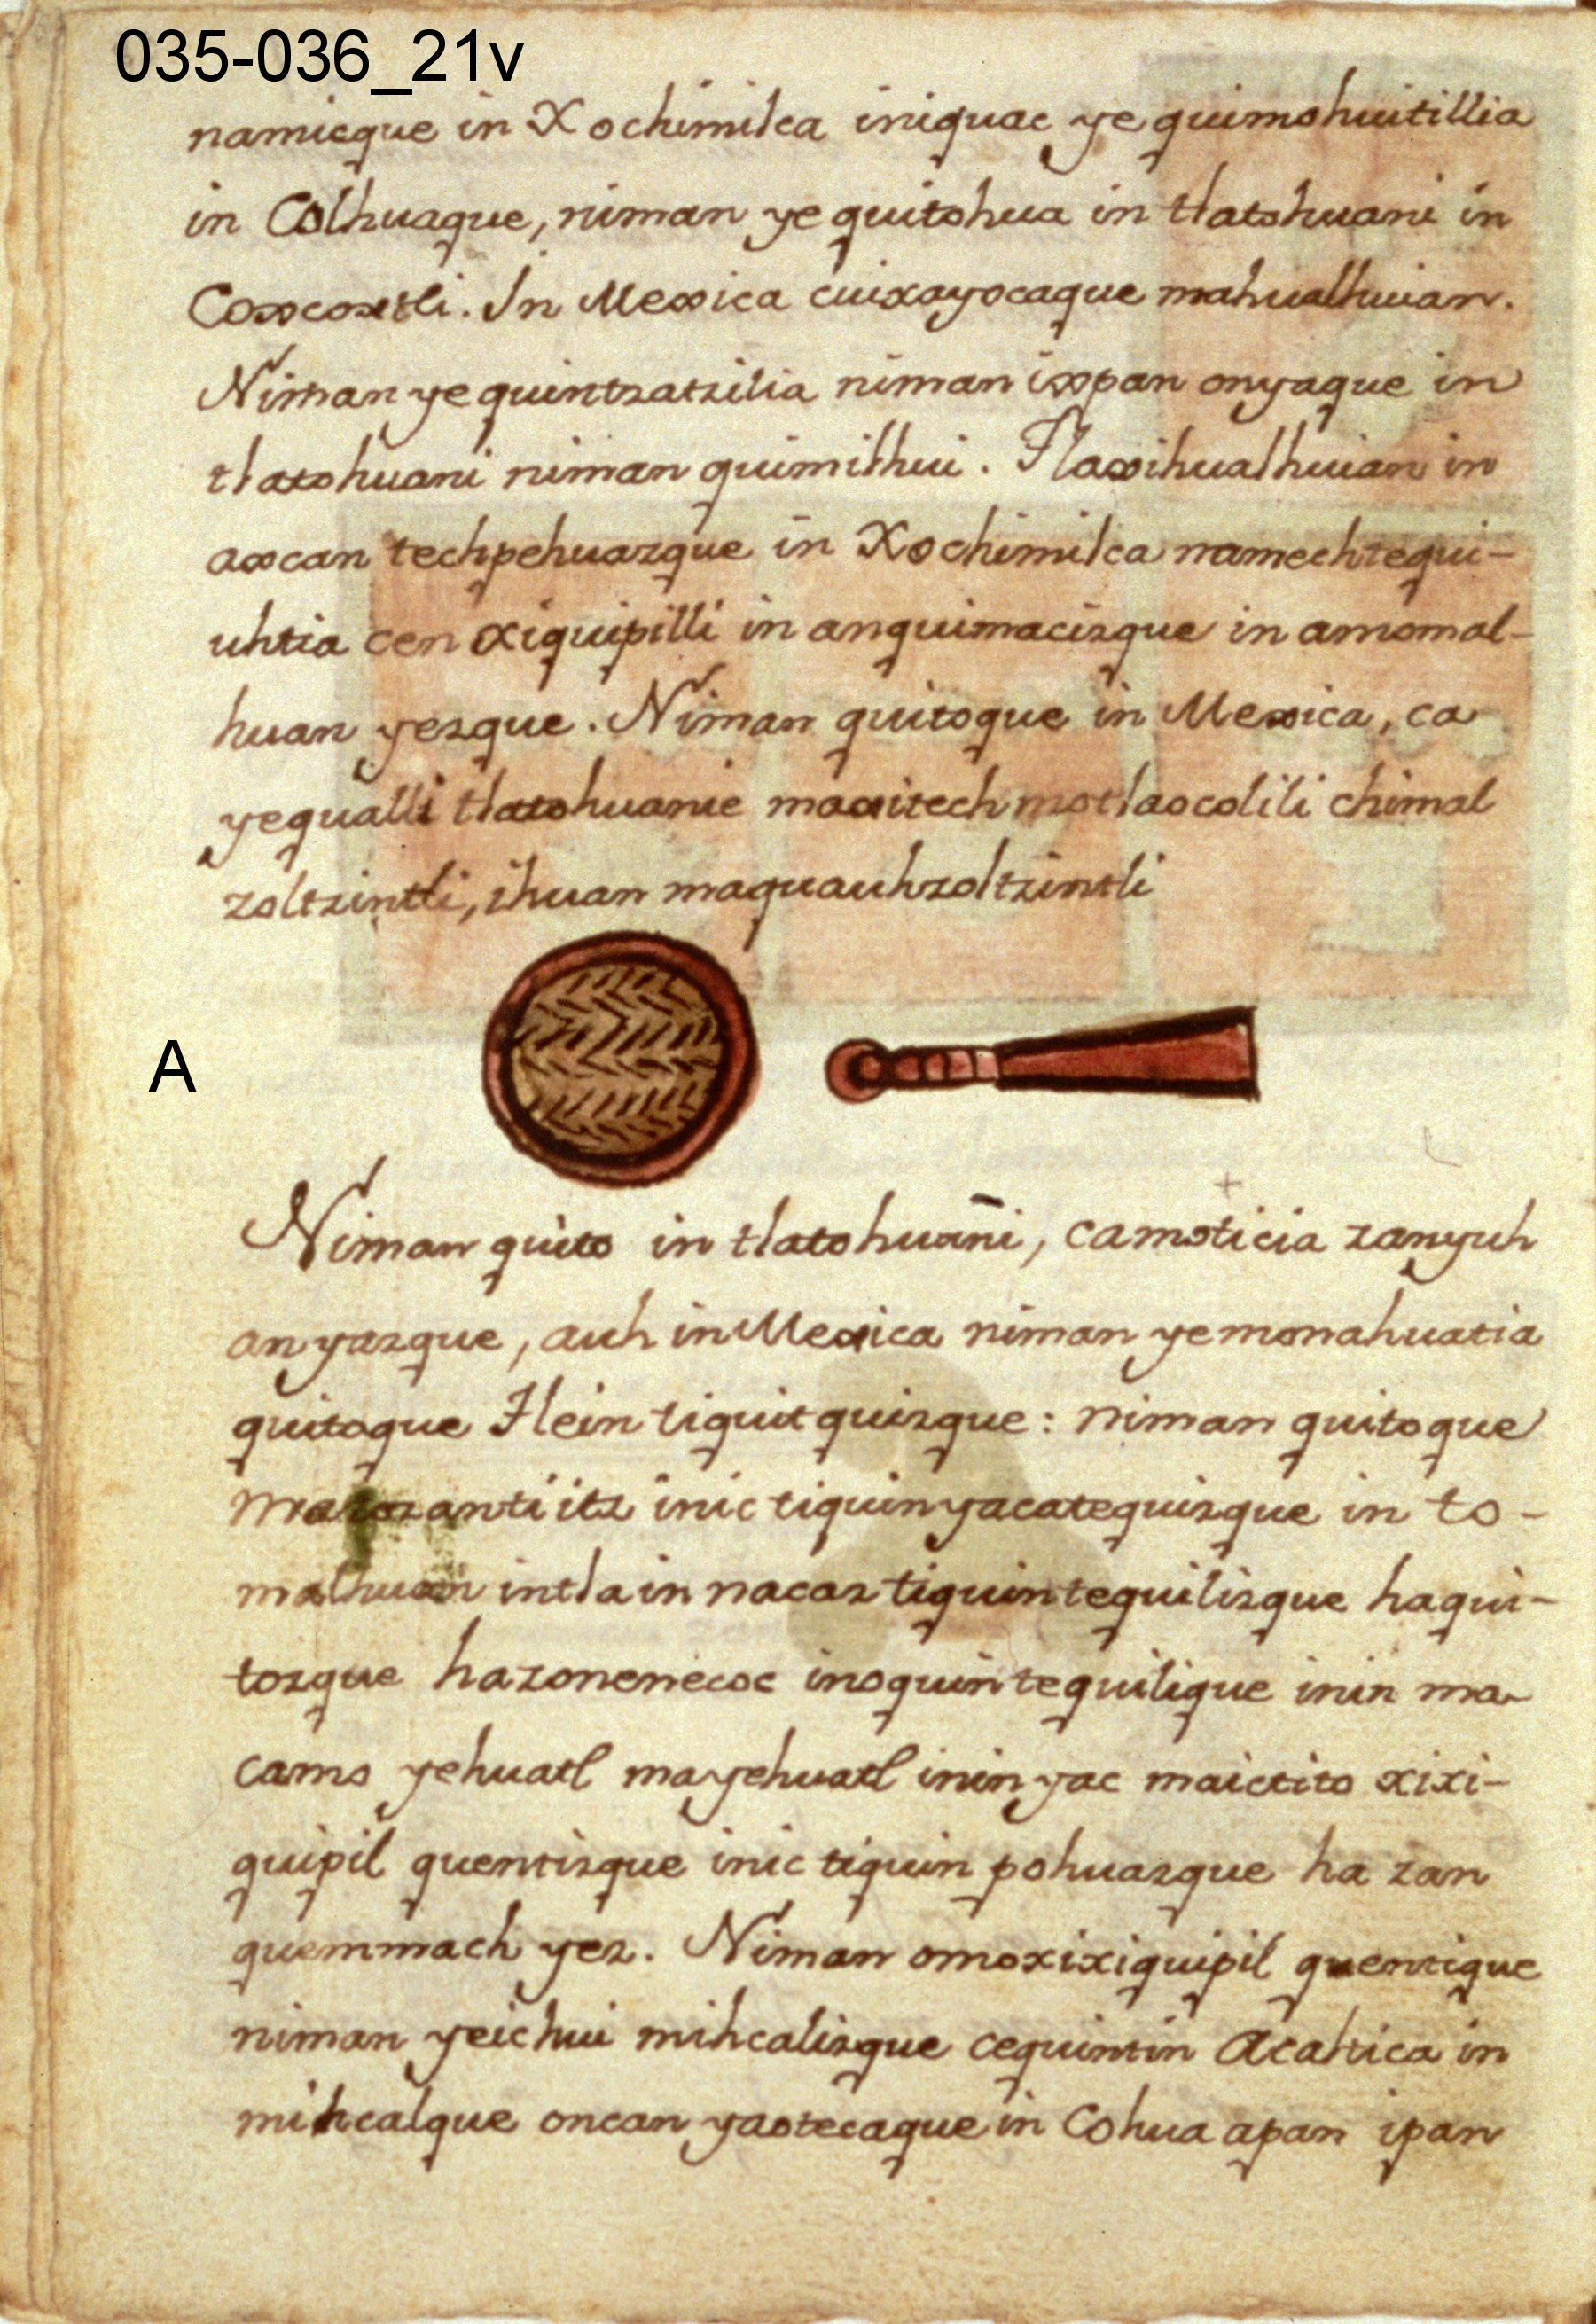 035-036_21v
namicque in Xochimilca iniquac ye quimohuitillia
in Colhuaque, niman ye quitohua in tlatohuani in
Coxcoxtli. In Mexica cuixayocaque mahualhuian.
Niman ye quintzatzilia niman ixpan onyaque in
tlatohuani niman quimilhui. Tlaxihualhuian in
axcan techpehuazque in Xochimilca namechtequi-
uhtia cen xiquipilli in anquimacizque in amomal-
huan yezque. Niman quitoque in Mexica, ca
yequalli tlatohuanie maxitech motlaocolili chimal
zoltzintli, ihuan maquauhzoltzintli
A
Niman quito in tlatohuāni, camoticia zanyuh
anyazque, auh in Mexica niman ye monahuatia
quitoque Tlein tiquitquizque: niman quitoque
mazozantiitz inic tiquinyacatequizque in to-
malhuan intla in nacaz tiquintequilizque haqui-
tozque hazonenecoc inoquintequilique inin ma-
camo yehuatl mayehuatl inin yac maictito xixi-
quipil quentizque inic tiquin pohuazque ha zan
quemmach yez. Niman omoxixiquipil quentique
niman yeichui mihcalizque cequintin Acaltica in
mihcalque oncan yaotecaque in Cohua apan ipan